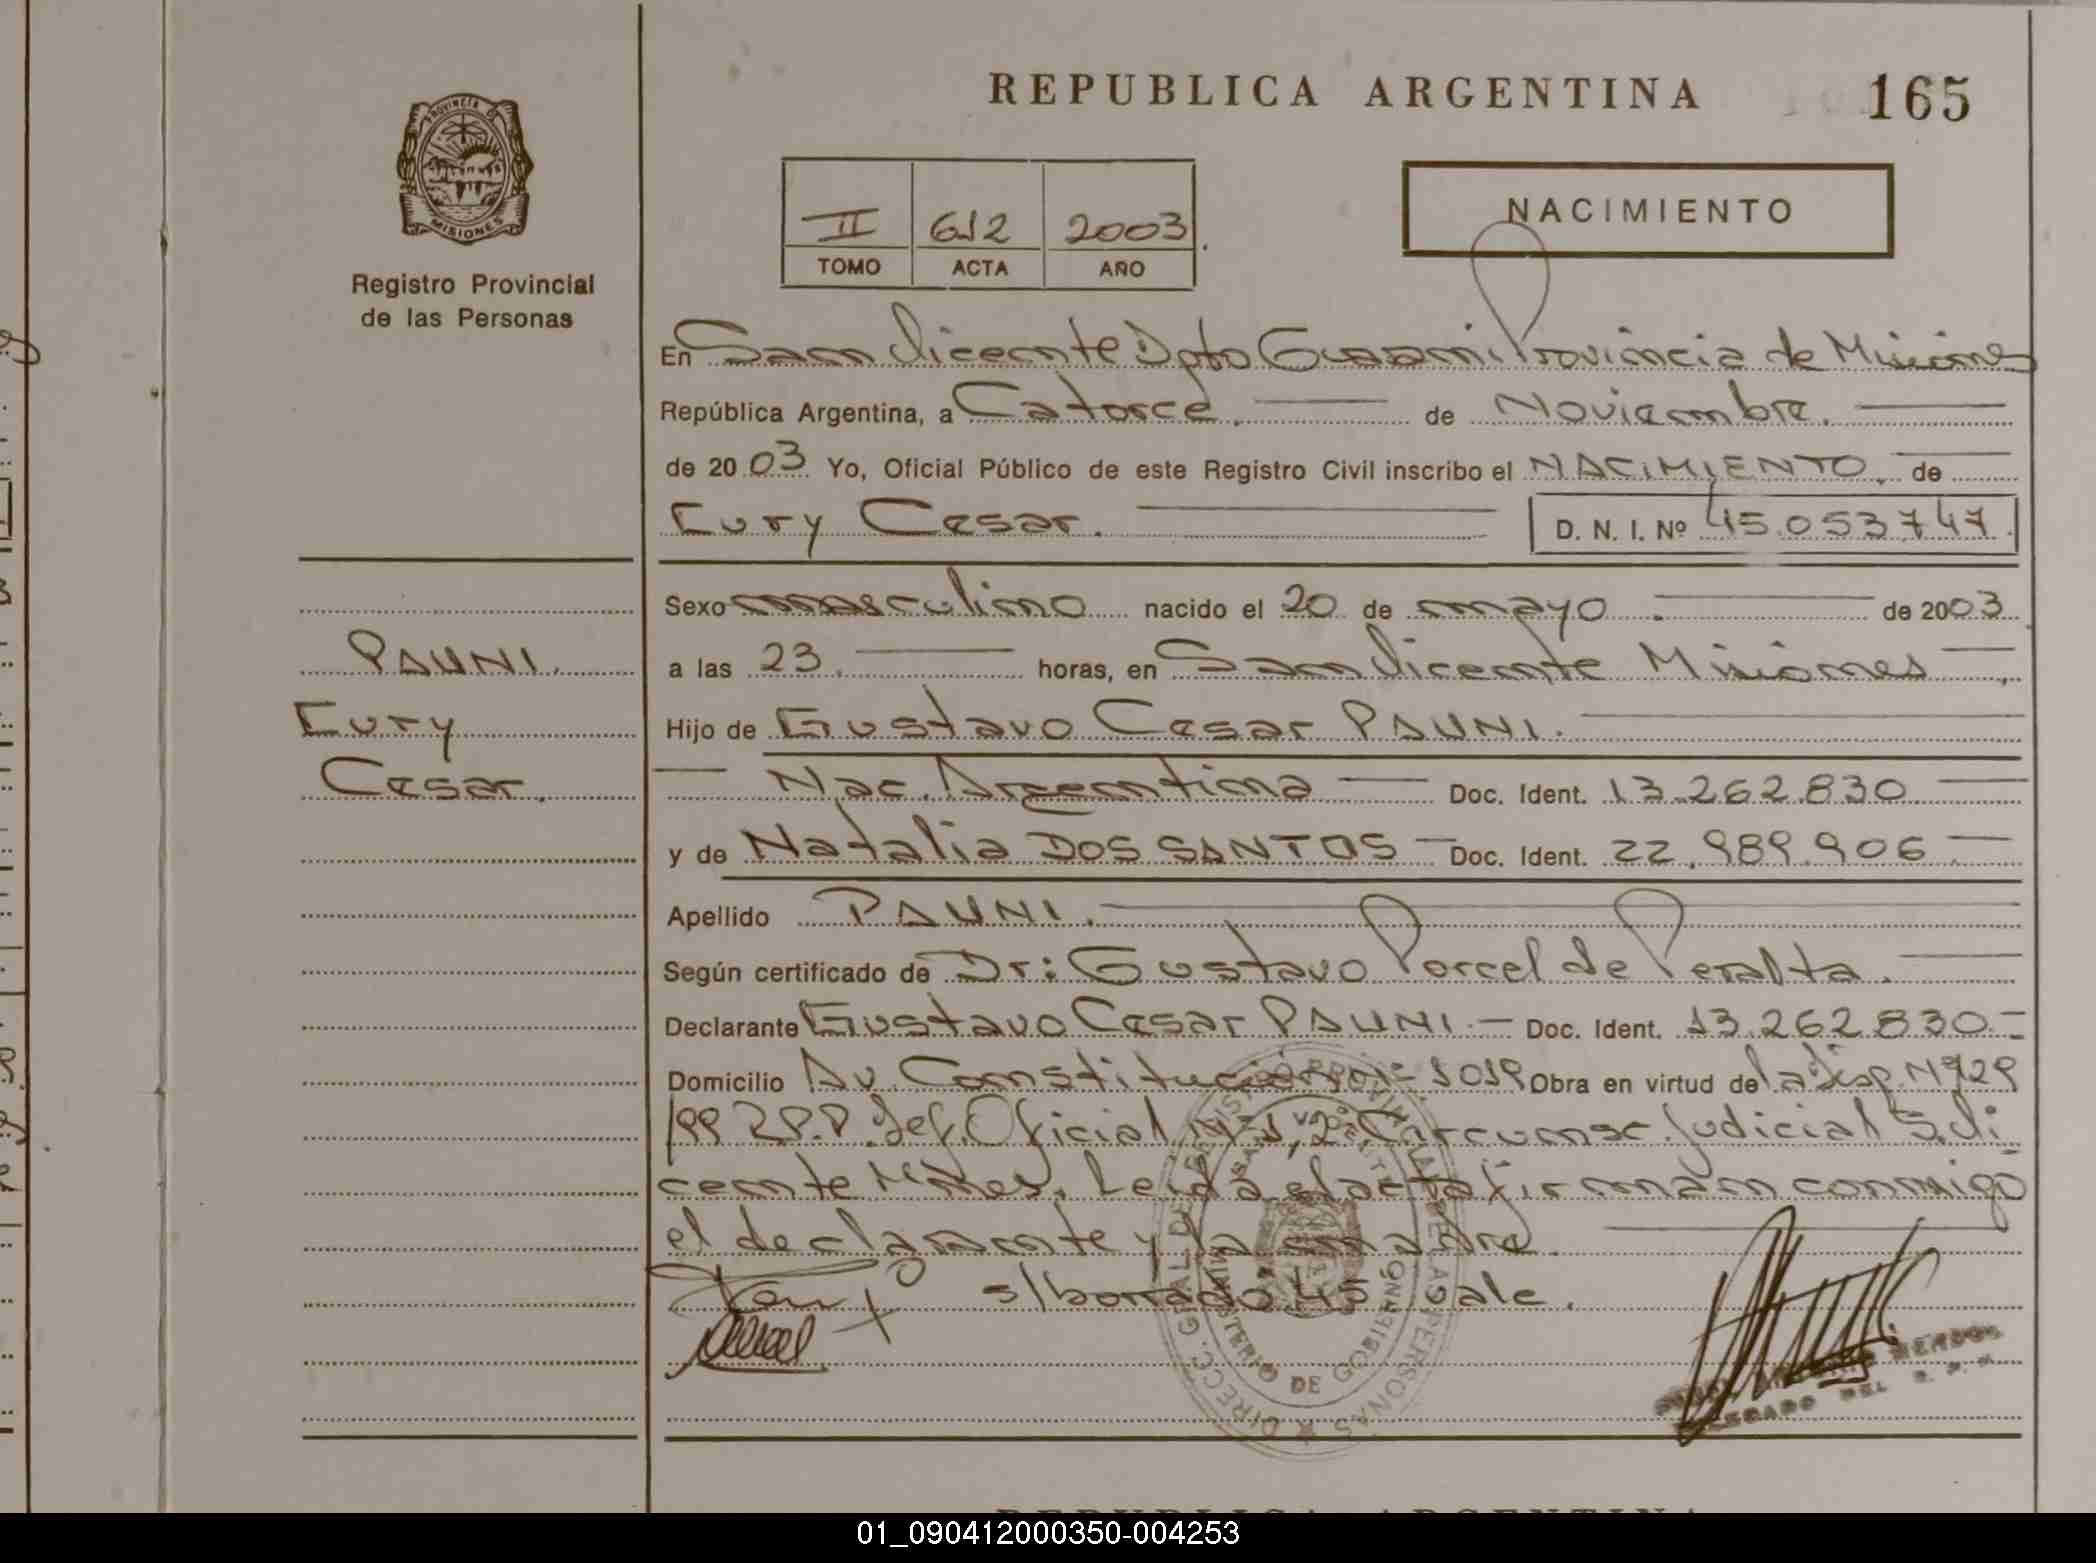 REPUBLICA ARGENTINA 165
PROVINCIA D MISIONES
Registro Provincial
de las Personas
II 612 2003
TOMO ACTA AÑO
NACIMIENTO
En San Vicente Dpto Guarani Provincia de Misiones
República Argentina, a Catorce. de Noviembre.
de 2003 Yo, Oficial Público de este Registro Civil inscribo el NACIMIENTO de
Eury Cesar. D. N. I. Nº 45.053747.
PAUNI.
Eury
Cesar.
Sexo masculino nacido el 20 de mayo. de 2003
a las 23. horas, en San Vicente Misiones
Hijo de Gustavo Cesar PAUNI.
Nac. Argentina Doc. Ident. 13.262.830
y de Natalia DOS SANTOS Doc. Ident. 22.989.906
Apellido PAUNI.
Según certificado de Dr: Gustavo Porcel de Peralta.
Declarante Gustavo Cesar PAUNI. Doc. Ident. 13.262.830
Domicilio Av. Constitución Nº 1019 Obra en virtud de la Disp. Nº 929
/99 R.P.P. Def. Oficial Nº 1, 2º Circunsc. Judicial S. Vi
cente Mnes. Leída el acta firman conmigo
el declarante y la madre.
s/borrado 45 Vale.
DIRECC. GRAL. DEL REGISTRO PROVINCIAL DE LAS PERSONAS
MINISTERIO DE GOBIERNO
DELEGADO DEL R. P. P.
REPUBLICA ARGENTINA
01_090412000350-004253